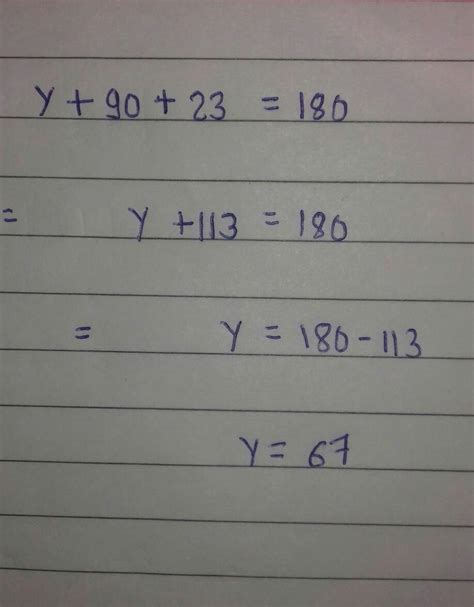 Y + 90 + 23 = 180
= Y + 113 = 180
= Y = 180 - 113
Y = 67